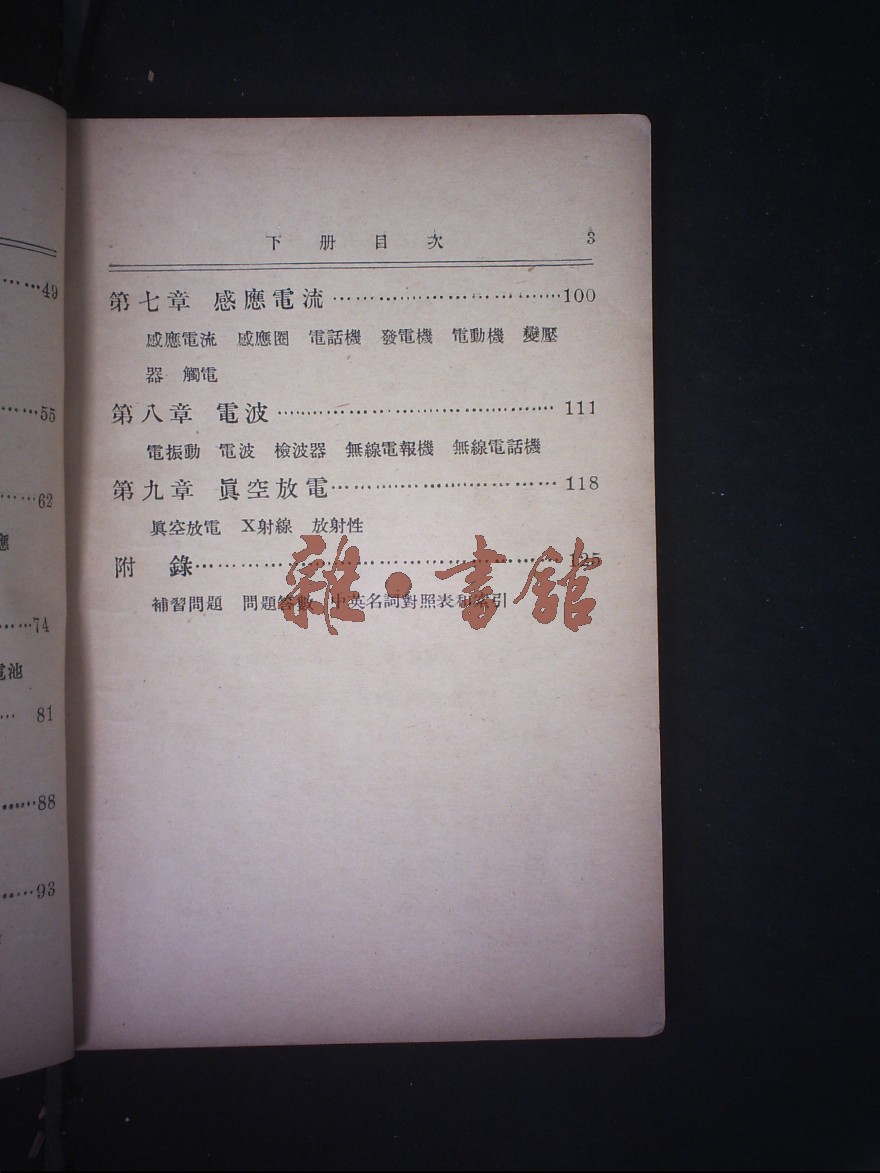 下册目次 3
第七章 感應電流……………………………100
感應電流 感應圈 電話機 發電機 電動機 變壓
器 觸電
第八章 電波……………………………111
電振動 電波 檢波器 無線電報機 無線電話機
第九章 眞空放電……………………………118
眞空放電 X射線 放射性
附 錄……………………………125
補習問題 問題答數 中英名詞對照表和索引
雜·書館
49
55
62
應
74
電池
81
88
93